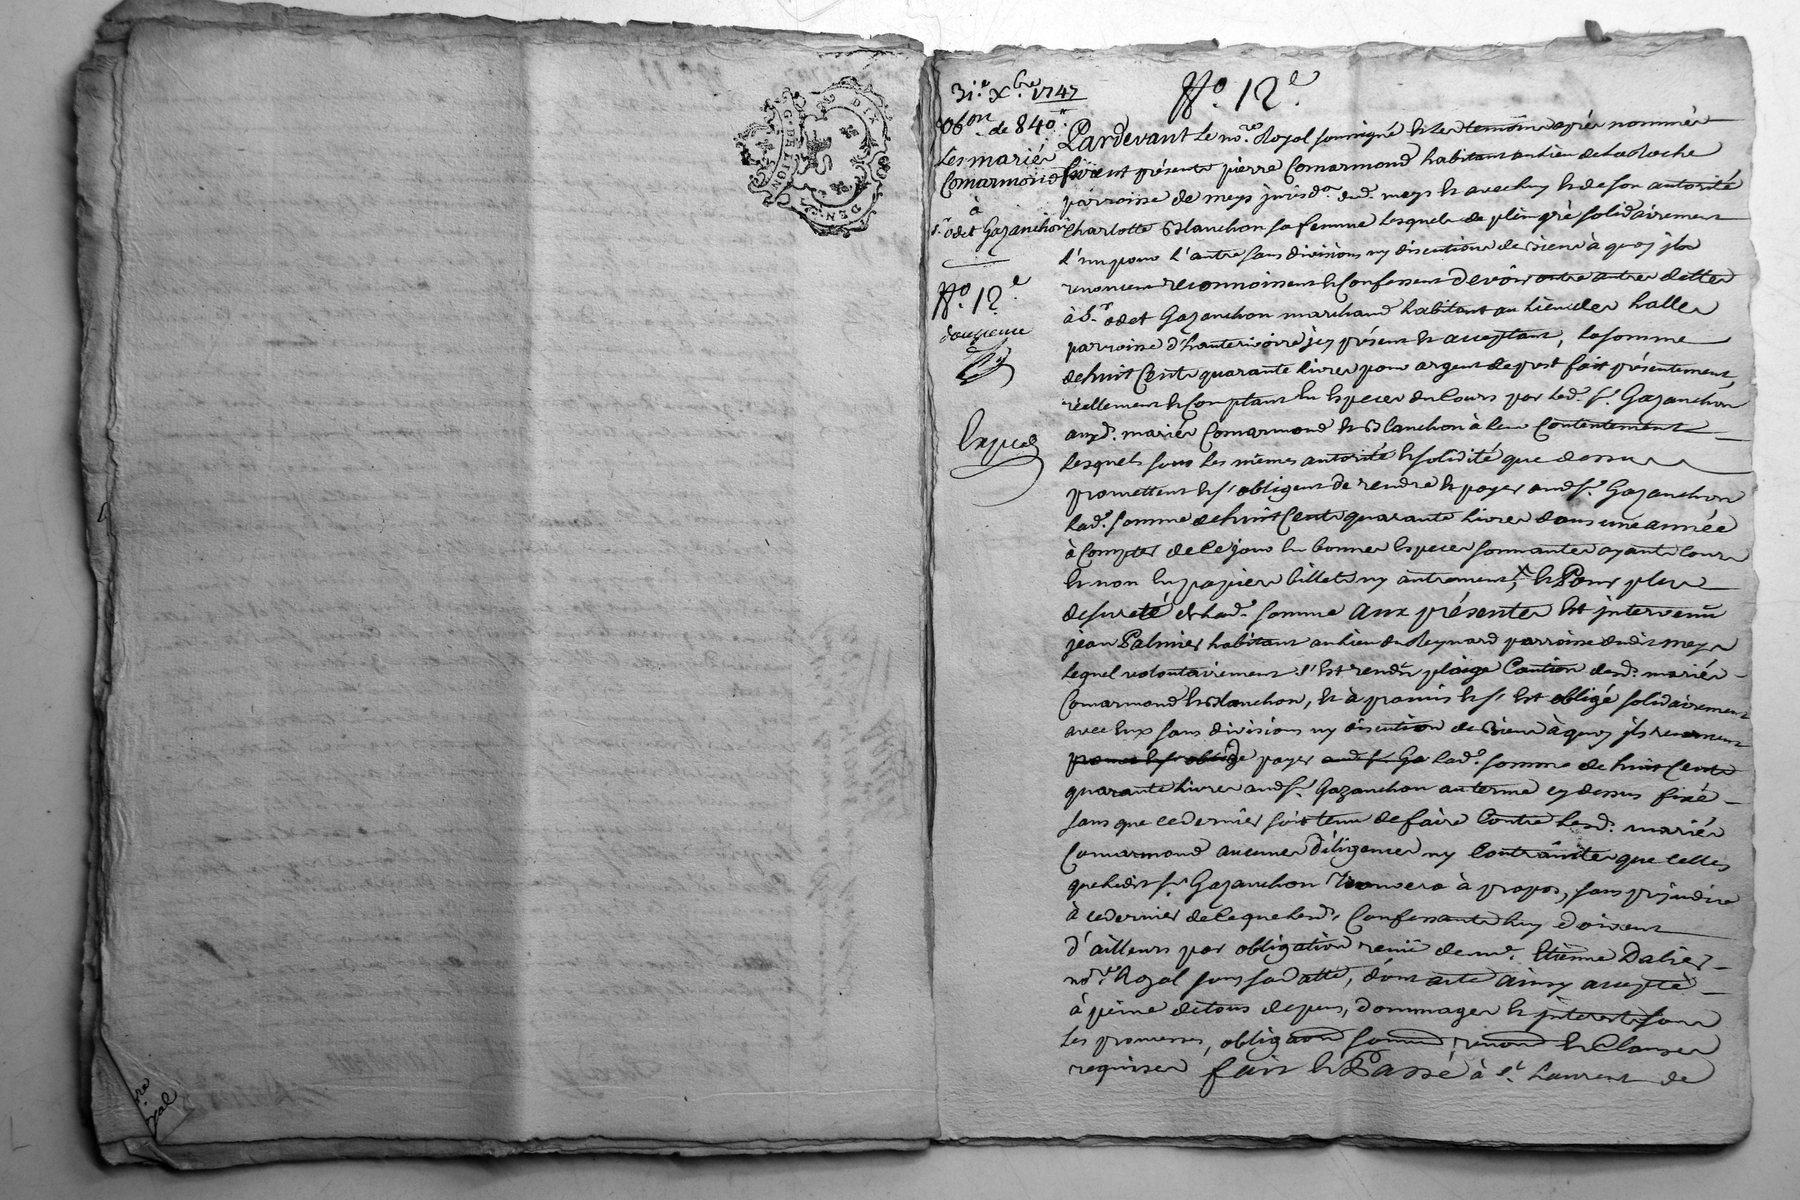 DIX
DEN.
G. DE LION
31.e Xbre 1747
No. 12.e
obon de 840#
Les mariés
Comarmond
à
s.r odet Gazanchon
No. 12.e
douzieme
Expedié
Pardevant Le no.re Royal soussigné et Les temoins après nommés
furent présents pierre Comarmond habitant au lieu de La Roche
parroisse de meys jurisd.on dud. meys et avec luy et de son autorité
Charlotte Blanchon sa femme Lesquels de plein gré solidairement
L'un pour L'autre sans division ny discution de biens à quoy ils
renoncent reconnoissent et Confessent devoir outre autres dettes
à S.r odet Gazanchon marchand habitant au Lieu des halles
parroisse d'hauterivoire jcy présent et acceptant, La somme
de huit Cents quarante Livres pour argent de prest fait présentement,
réellement et Comptant En Especes du Cours par Led. s.r Gazanchon
auxd. mariés Comarmond et Blanchon à Leur Contentement
Lesquels sous Les mêmes autorité et solidité que dessus
promettent et s'obligent de rendre et payer aud. s.r Gazanchon
Lad. somme de huit Cents quarante Livres dans une année
à Compter de Ce jour En bonnes Especes sonnantes ayants Cours
et non En papiers billets ny autrement, et Pour plus
de sureté de Lad. somme aux présentes Est intervenu
jean Palmier habitant au lieu du Reynard parroisse dudit meys
Lequel volontairement s'Est rendu pleige Caution desd. mariés
Comarmond et Blanchon, et à promis et s'Est obligé solidairement
avec Eux sans division ny discution de biens à quoy ils renoncent
promet et s'oblige payer aud. s.r Ga Lad. somme de huit Cents
quarante Livres aud. s.r Gazanchon au terme cy dessus fixé
sans que ce dernier soit tenu de faire Contre Lesd. mariés
Comarmond aucunes diligences ny Contraintes que celles
que Ledit s.r Gazanchon trouvera à propos, sans préjudice
à ce dernier de Ce que Lesd. Confessants Luy doivent
d'ailleurs par obligation reçue de me. Etienne Dalier
no.re Royal sous sa datte, dont acte ainsy accepté
à peine de tous depens, dommages et interests sous
Les promesses, obligaons soumons renons et Clauses
requises fait et Passé à S.t Laurent de